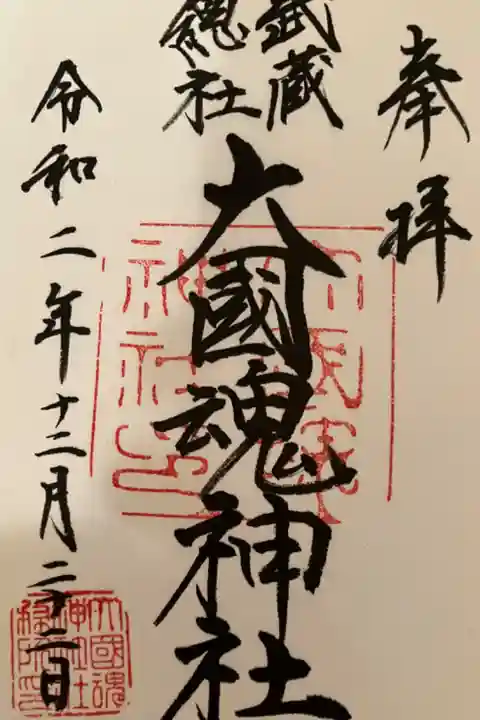 奉拝
武蔵
總社
大國魂神社
令和二年十二月二十二日
大國魂
神社